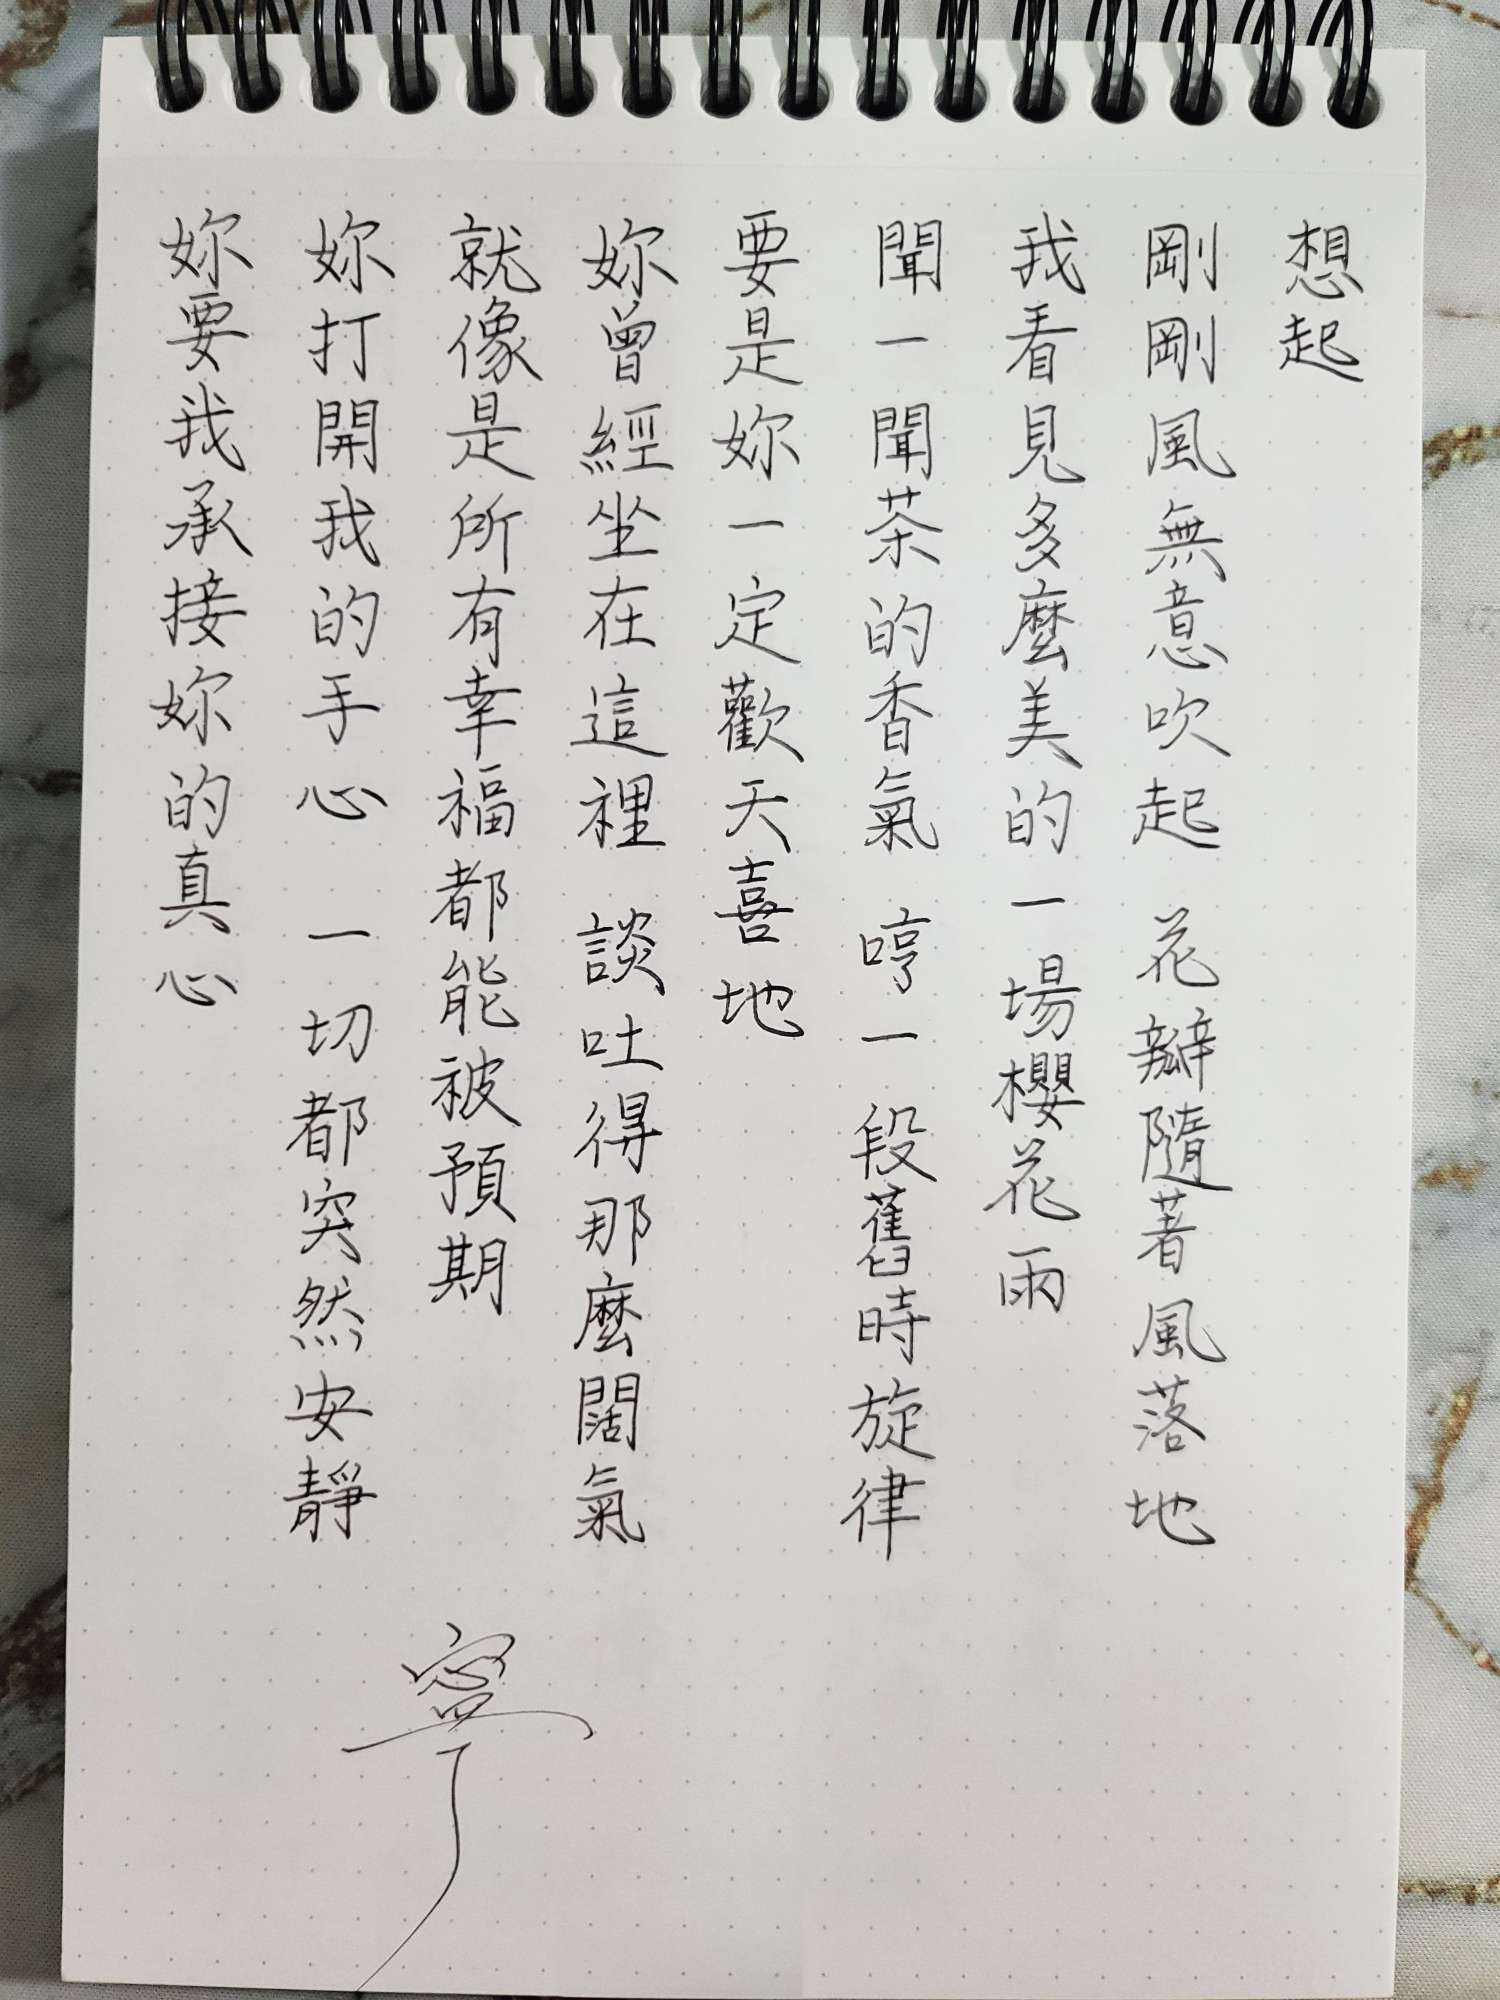 想起
剛剛風無意吹起 花瓣隨著風落地
我看見多麼美的一場櫻花雨
聞一聞茶的香氣 哼一段舊時旋律
要是妳一定歡天喜地
妳曾經坐在這裡 談吐得那麼闊氣
就像是所有幸福都能被預期
妳打開我的手心 一切都突然安靜
妳要我承接妳的真心
寧